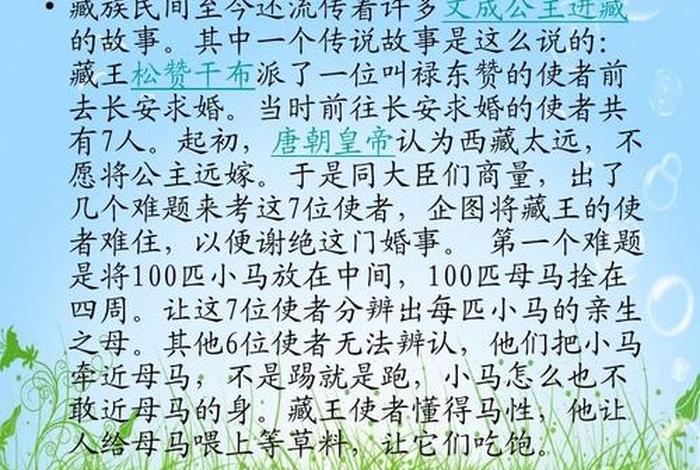 • 藏族民间至今还流传着许多文成公主进藏
的故事。其中一个传说故事是这么说的：
藏王松赞干布派了一位叫禄东赞的使者前
去长安求婚。当时前往长安求婚的使者共
有7人。起初，唐朝皇帝认为西藏太远，不
愿将公主远嫁。于是同大臣们商量，出了
几个难题来考这7位使者，企图将藏王的使
者难住，以便谢绝这门婚事。 第一个难题
是将100匹小马放在中间，100匹母马拴在
四周。让这7位使者分辨出每匹小马的亲生
之母。其他6位使者无法辨认，他们把小马
牵近母马，不是踢就是跑，小马怎么也不
敢近母马的身。藏王使者懂得马性，他让
人给母马喂上等草料，让它们吃饱。